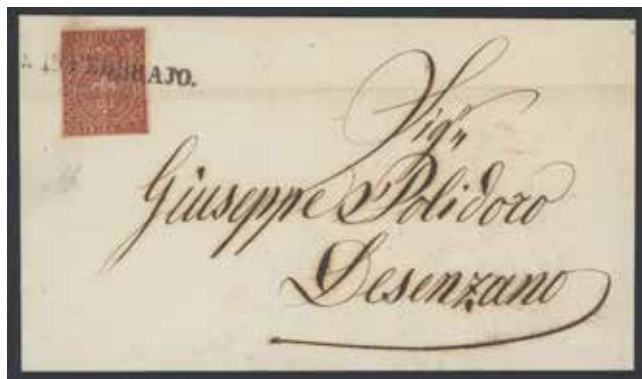 FEBBRAJO.
Sig.r
Giuseppe Polidoro
Desenzano